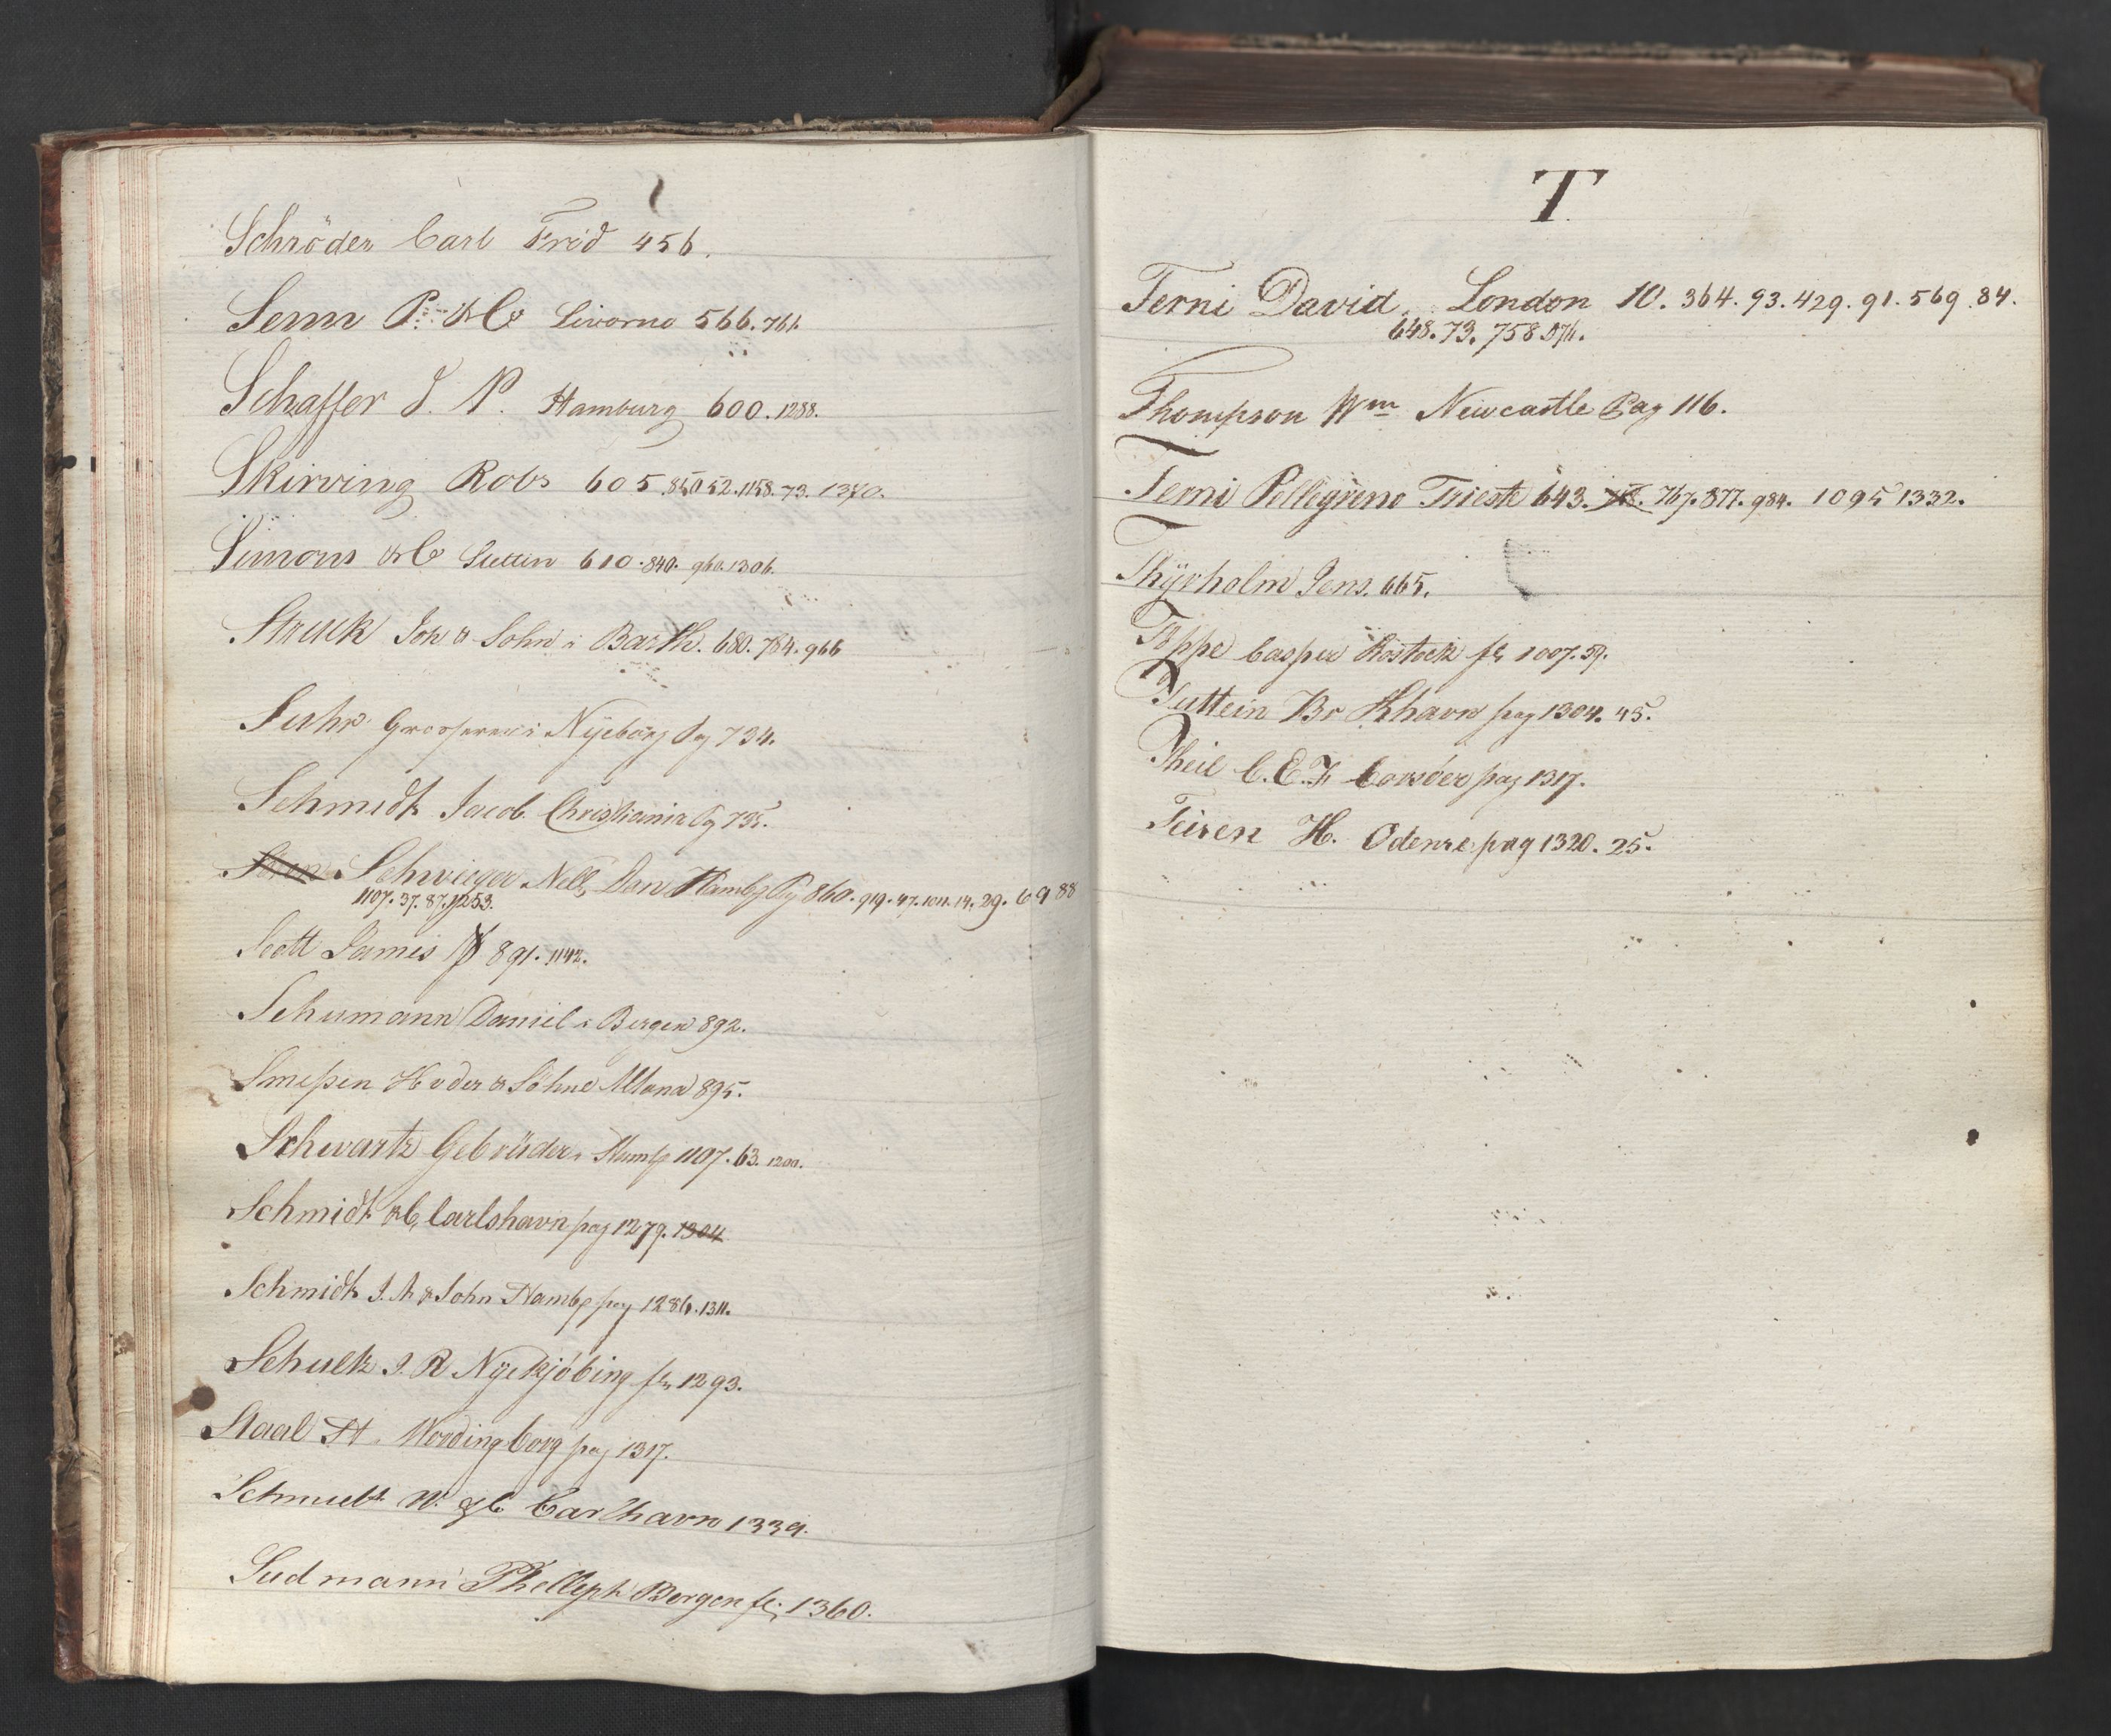 Schröder Carl Frid 456.
Senn P. & Co Livorno 566. 761.
Schaffer J. P. Hamburg 600. 1288.
Skirving Robs 605. 850 52. 1158. 73. 1370.
Simons & Co Stettin 610. 840. 960. 1306.
Struck Joh & Sohn i Barth. 680. 784. 966
Suhr Grosserer i Nyeborg Pag 734.
Schmidt Jacob. Christiania Pag 735.
Schwieger Nell Dan Hambg Pag 860. 919. 47. 1011. 14. 29. 69 88
1107. 37. 87. 1253.
Scott James 891. 1142.
Schumann Daniel i Bergen 892.
Smeſsen H & Söhne Altona 895.
Schwartz Gebrüder i Hambg 1107. 63. 1200.
Schmidt & C. Carlshavn pag 1279. 1304
Schmidt J. M & Sohn Hambg pag 1286. 1311.
Schultz J. R Nyekjöbing 1293.
Staal H. Wordingborg pag 1317.
Schmidt W. & C Carlhavn 1339.
Sudmann Phellyph Bergen 1360.
T
Terni David London 10. 364. 93. 429. 91. 569. 84.
648. 73. 758. 976.
Thompson Wm Newcastle Pag 116.
Terni Pellegrino Trieste 643. 767. 877. 984. 1095 1332.
Thÿrholm Jens. 665.
Toppe Casper Rostock 1007. 59.
Tuttein Br Khavn pag 1304. 45.
Theil C. E. F. Corsöer pag 1317.
Teisen H. Odense pag 1320. 25.